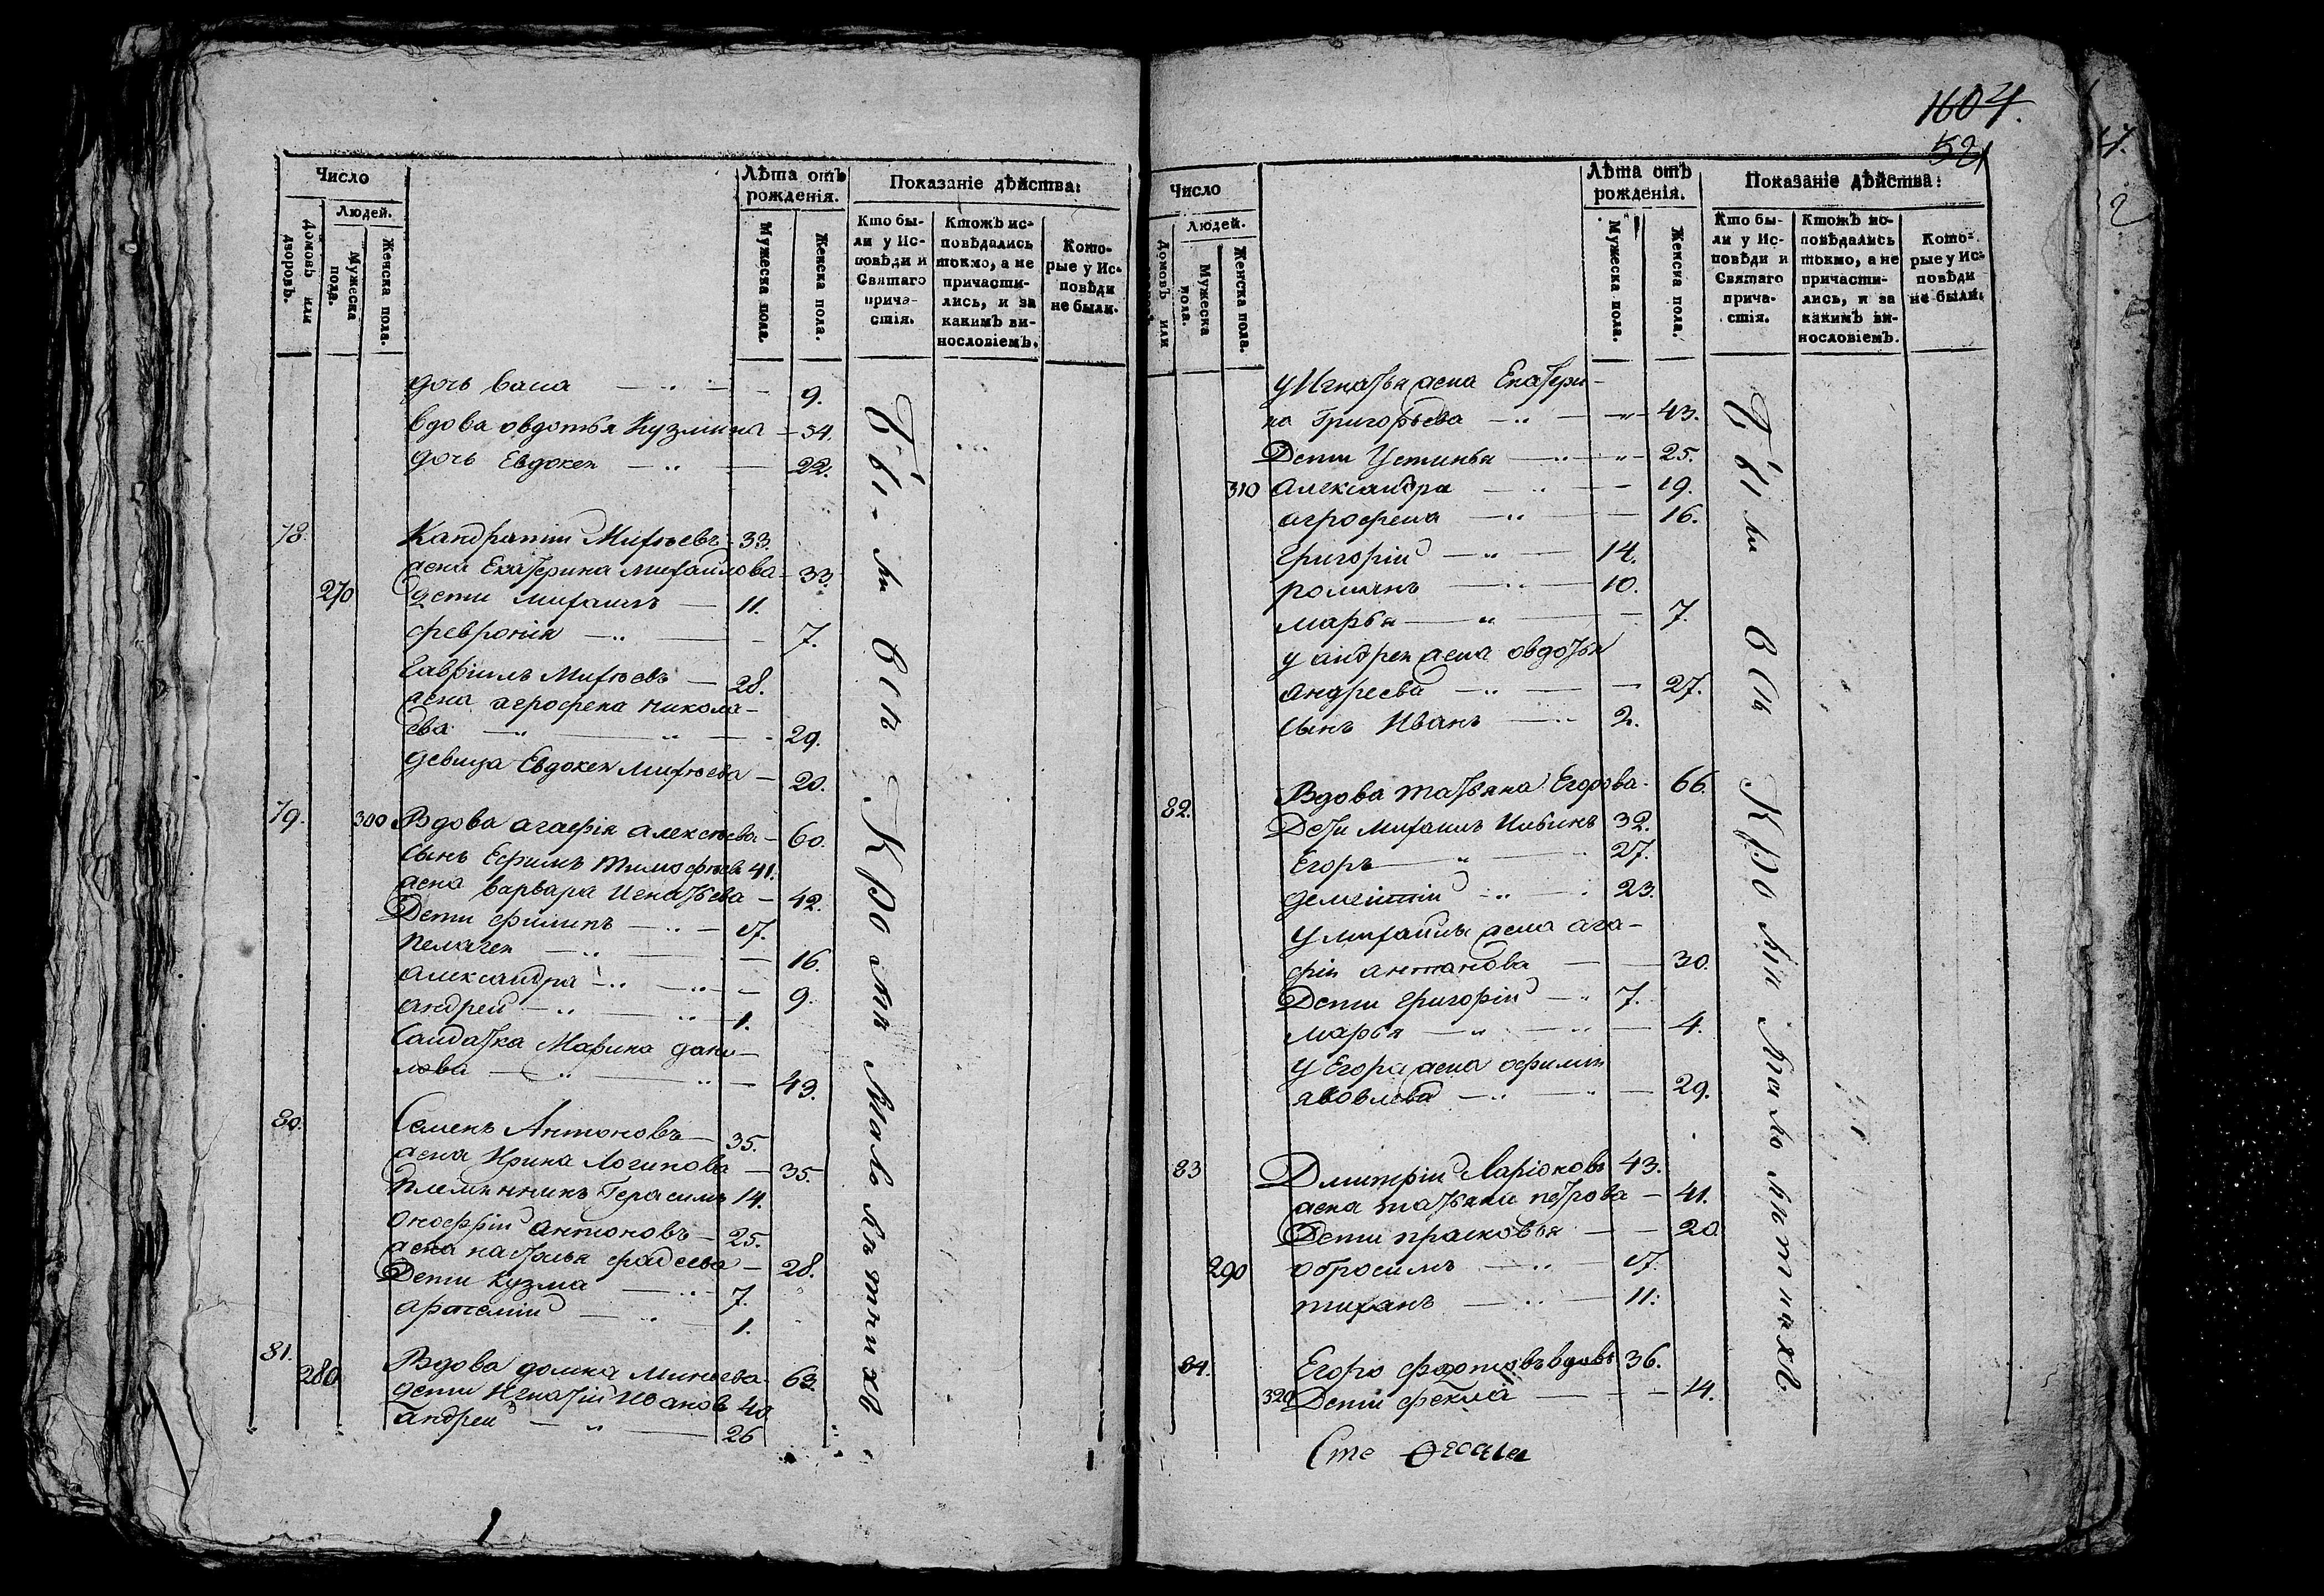 Число
Людей.
Домовъ или дворовъ.
Мужеска пола.
Женска пола.
Лѣта отъ рожденія.
Мужеска пола.
Женска пола.
Показаніе дѣйства:
Кто были у Исповѣди и Святаго причастія.
Ктожъ исповѣдались токмо, а не причастились, и за какимъ винословіемъ.
Которые у Исповѣди не были.
дочь васа 9.
вдова овдотья Кузмина 54.
дочь Евдокея 22.
78. Кандратий Михѣевъ 33.
жена Екатерина михаилова 33.
270 дети михаилъ 11.
феврония 7.
Гавриилъ Михѣевъ 28.
жена агрофена никола-
ева 29.
девица Евдокея михѣева 20.
79. 300 Вдова агафія алексѣева 60.
сынъ Ефимъ тимофѣевъ 41.
жена варвара игнатьева 42.
Дети филипъ 17.
пелагея 16.
александра 9.
андрей 1.
Салдатка Марина дани-
лова 43.
80. Семенъ Антоновъ 35.
жена Ирина Логинова 35.
племянникъ Герасимъ 14.
онофрій антоновъ 25.
жена наталья фадеева 28.
Дети кузма 7.
артемій 1.
81. 280 Вдова домна минаева 63.
дети Игнатій Ивановъ 40
андрей 26
Были вси Кромѣ Малолѣтнихъ
1604.
521
Число
Людей.
Домовъ или
Мужеска пола.
Женска пола.
Лѣта отъ рожденія.
Мужеска пола.
Женска пола.
Показаніе дѣйства:
Кто были у Исповѣди и Святаго причастія.
Ктожъ исповѣдались токмо, а не причастились, и за какимъ винословіемъ.
Которые у Исповѣди не были.
у Игнатья жена Екатери-
на Григорьева 43.
Дети Устинья 25.
310 александра 19.
агрофена 16.
григорій 14.
романъ 10.
марья 7.
у андрея жена овдотья
андреева 27.
сынъ Иванъ 2.
82. Вдова татьяна Егорова 66.
Дети михаилъ Ильинъ 32.
Егоръ 27.
дементий 23.
у михаила жена ага-
фія антонова 30.
Дети григорій 7.
марья 4.
у Егора жена офимія
яковлева 29.
83 Дмитрій Ларіоновъ 43.
жена татьяна петрова 41.
Дети прасковья 20
290 обросимъ 17.
тиханъ 11.
84. Егоръ федотовъ вдовъ 36.
320 Дети фекла 14.
Были вси Кромѣ Малолѣтнихъ